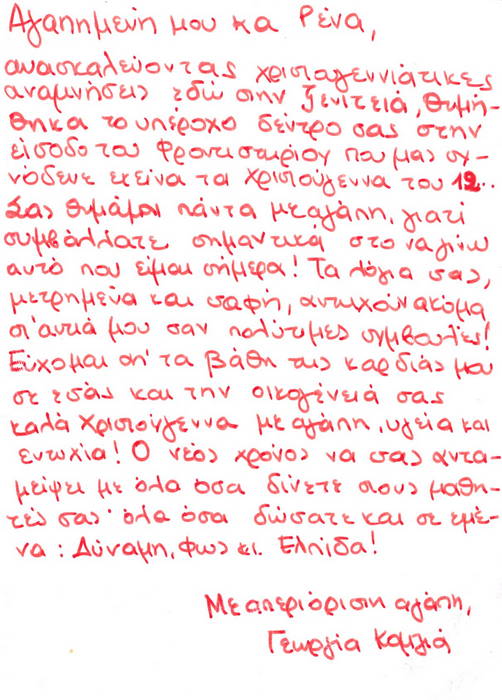 Αγαπημένη μου κα Ρένα,
ανασκαλεύοντας χριστουγεννιάτικες
αναμνήσεις εδώ στην ξενιτειά, θυμή-
θηκα το υπέροχο δέντρο σας στην
είσοδο του φροντιστηρίου που μας συ-
νόδευε εκείνα τα Χριστούγεννα του 12..
Σας θυμάμαι πάντα με αγάπη, γιατί
συμβάλλατε σημαντικά στο να γίνω
αυτό που είμαι σήμερα! Τα λόγια σας,
μετρημένα και σαφή, αντηχούν ακόμα
στ' αυτιά μου σαν πολύτιμες συμβουλές!
Εύχομαι απ' τα βάθη της καρδιάς μου
σε εσάς και την οικογένειά σας
καλά Χριστούγεννα με αγάπη, υγεία και
ευτυχία! Ο νέος χρόνος να σας αντα-
μείψει με όλα όσα δίνετε στους μαθη-
τές σας· όλα όσα δώσατε και σε εμέ-
να: Δύναμη, Φως κι Ελπίδα!
Με απεριόριστη αγάπη,
Γεωργία Καμιλιά